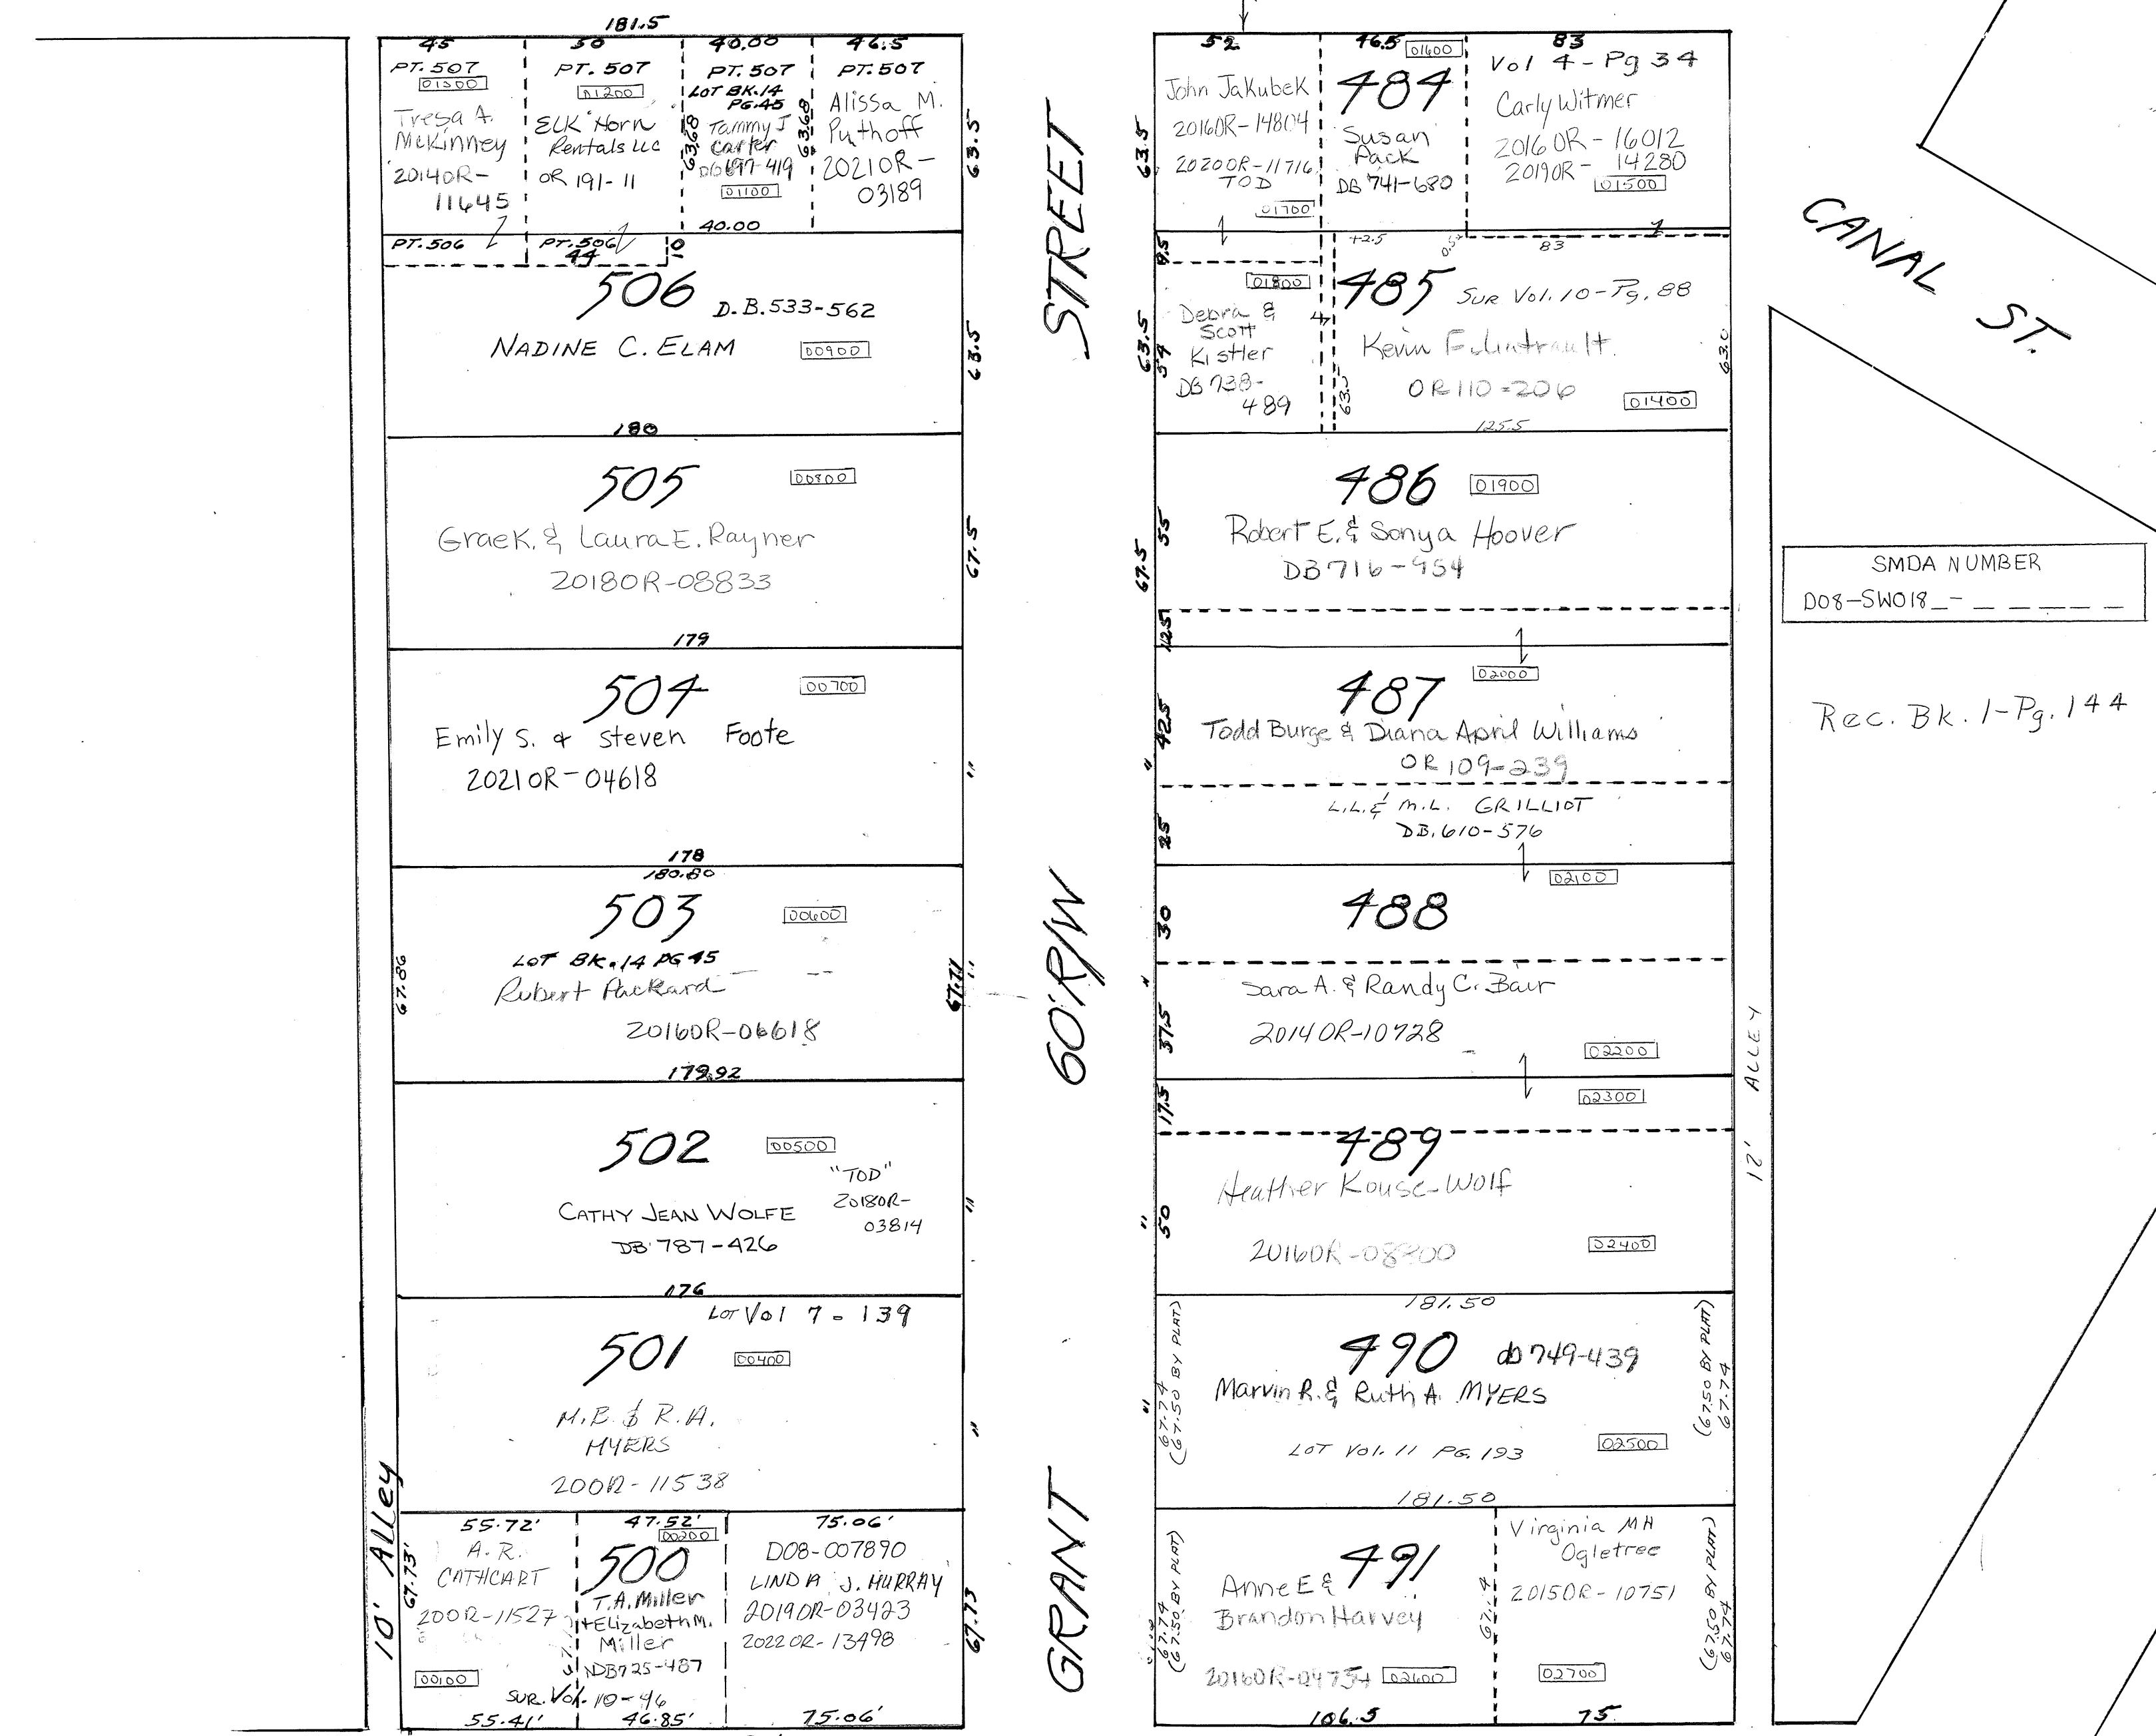 181.5
45
50
40.00
46.5
PT. 507
01300
Tresa A.
McKinney
2014OR-
11645
PT. 507
01200
Elk Horn
Rentals LLC
OR 191-11
PT. 507
LOT BK.14
PG.45
Tammy J
Carter
DB 697-419
01100
63.68
63.68
40.00
PT. 507
Alissa M.
Puthoff
2021OR-
03189
63.5
PT. 506
PT. 506
44
10
506
D.B. 533-562
NADINE C. ELAM
00900
63.5
180
505
00800
Grae K. & Laura E. Rayner
2018OR-08833
67.5
179
504
00700
Emily S. & Steven Foote
2021OR-04618
"
178
180.80
503
00600
LOT BK.14 PG 45
Robert Packard
2016OR-06618
67.86
67.71
"
179.92
502
00500
"TOD"
2018OR-
03814
CATHY JEAN WOLFE
DB 787-426
"
176
LOT Vol 7-139
501
00400
M.B. & R.A.
MYERS
200R-11538
"
10' Alley
55.72'
A.R.
CATHCART
200R-11527
67.73'
00100
55.41'
47.52'
00200
500
T.A. Miller
+ Elizabeth M.
Miller
DB725-487
SUR. Vol. 10-46
46.85'
75.06'
D08-007890
LINDA J. MURRAY
2019OR-03423
2022OR-13498
75.06'
67.73
GRANT
60' R/W
STREET
52
46.5
01600
83
John Jakubek
2016OR-14804
2020OR-11716
TOD
01700
63.5
484
Susan
Pack
DB 741-680
Vol 4-Pg 34
Carly Witmer
2016OR-16012
2019OR-14280
01500
9.5
42.5
0.5
83
01800
Debra &
Scott
Kistler
DB 738-
489
63.5
54
4
63.5
485
Sur Vol. 10-Pg. 88
Kevin
OR 110-206
01400
63.0
125.5
486
01900
Robert E. & Sonya Hoover
DB 716-954
67.5
55
12.5
02000
487
Todd Burge & Diana April Williams
OR 109-239
"
42.5
L.L. & M.L. GRILLIOT
DB. 610-576
25
02100
488
30
Sara A. & Randy C. Bair
2014OR-10728
"
37.5
02200
17.5
02300
489
Heather Kouse-Wolf
"
50
02400
181.50
490
db 749-439
Marvin R. & Ruth A. MYERS
LOT Vol. 11 PG. 193
02500
"
67.74
(67.50 BY PLAT)
(67.50 BY PLAT)
67.74
181.50
491
Anne E &
Brandon Harvey
02600
67.74
(67.50 BY PLAT)
67.74
106.5
Virginia MH
Ogletree
2015OR-10751
02700
(67.50 BY PLAT)
67.74
75
12' ALLEY
CANAL ST.
SMDA NUMBER
D08-SW018_-_ _ _ _ _
Rec. Bk. 1-Pg. 144